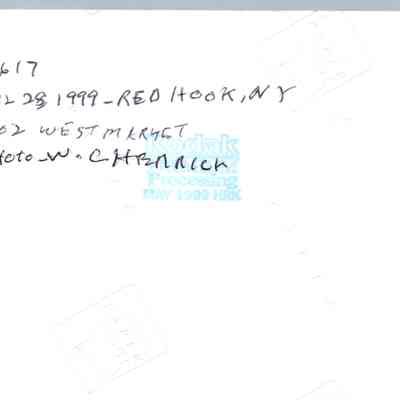 617
28 1999 - RED HOOK, NY
02 WEST MARKET
HOTO - W. C HERRICK
Kodak
Processing
MAY 1999 HRK